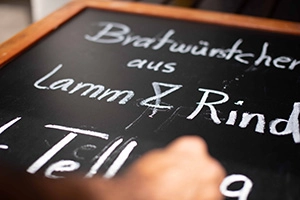 Bratwürstchen
aus
Lamm & Rind
1 Tell